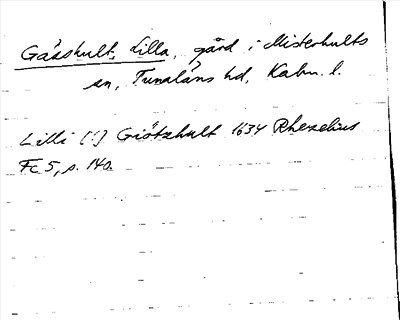 Gässhult, Lilla, gård i Misterhults
sn, Tunaläns hd, Kalm. l.
Lilli [:] Giötzhult 1634 Rhezelius
Fc 5, s. 140.